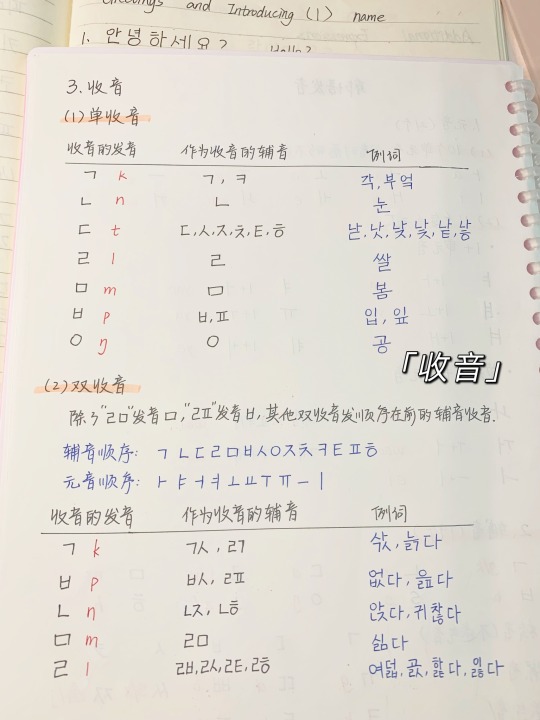 Greetings and Introducing (1) name
1. 안녕하세요? Hello?
3. 收音
(1) 单收音
收音的发音 作为收音的辅音 例词
ㄱ k ㄱ, ㅋ 각, 부엌
ㄴ n ㄴ 눈
ㄷ t ㄷ, ㅅ, ㅈ, ㅊ, ㅌ, ㅎ 낟, 낫, 낮, 낯, 낱, 낳
ㄹ l ㄹ 쌀
ㅁ m ㅁ 봄
ㅂ p ㅂ, ㅍ 입, 잎
ㅇ ŋ ㅇ 공
「收音」
(2) 双收音
除了"ㄹㅁ"发音ㅁ, "ㄹㅍ"发音ㅂ, 其他双收音发顺序在前的辅音收音.
辅音顺序: ㄱㄴㄷㄹㅁㅂㅅㅇㅈㅊㅋㅌㅍㅎ
元音顺序: ㅏㅑㅓㅕㅗㅛㅜㅠㅡㅣ
收音的发音 作为收音的辅音 例词
ㄱ k ㄱㅅ, ㄹㄱ 삯, 늙다
ㅂ p ㅂㅅ, ㄹㅍ 없다, 읊다
ㄴ n ㄴㅈ, ㄴㅎ 앉다, 귀찮다
ㅁ m ㄹㅁ 싦다
ㄹ l ㄹㅂ, ㄹㅅ, ㄹㅌ, ㄹㅎ 여덟, 곬, 핥다, 잃다